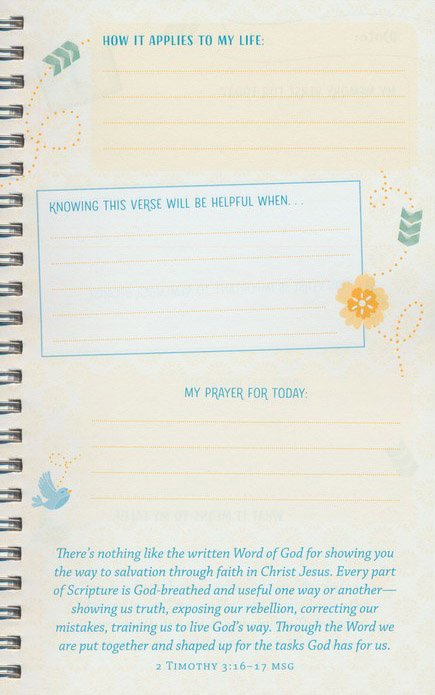 HOW IT APPLIES TO MY LIFE:
KNOWING THIS VERSE WILL BE HELPFUL WHEN. . .
MY PRAYER FOR TODAY:
There's nothing like the written Word of God for showing you
the way to salvation through faith in Christ Jesus. Every part
of Scripture is God-breathed and useful one way or another—
showing us truth, exposing our rebellion, correcting our
mistakes, training us to live God's way. Through the Word we
are put together and shaped up for the tasks God has for us.
2 TIMOTHY 3:16–17 MSG